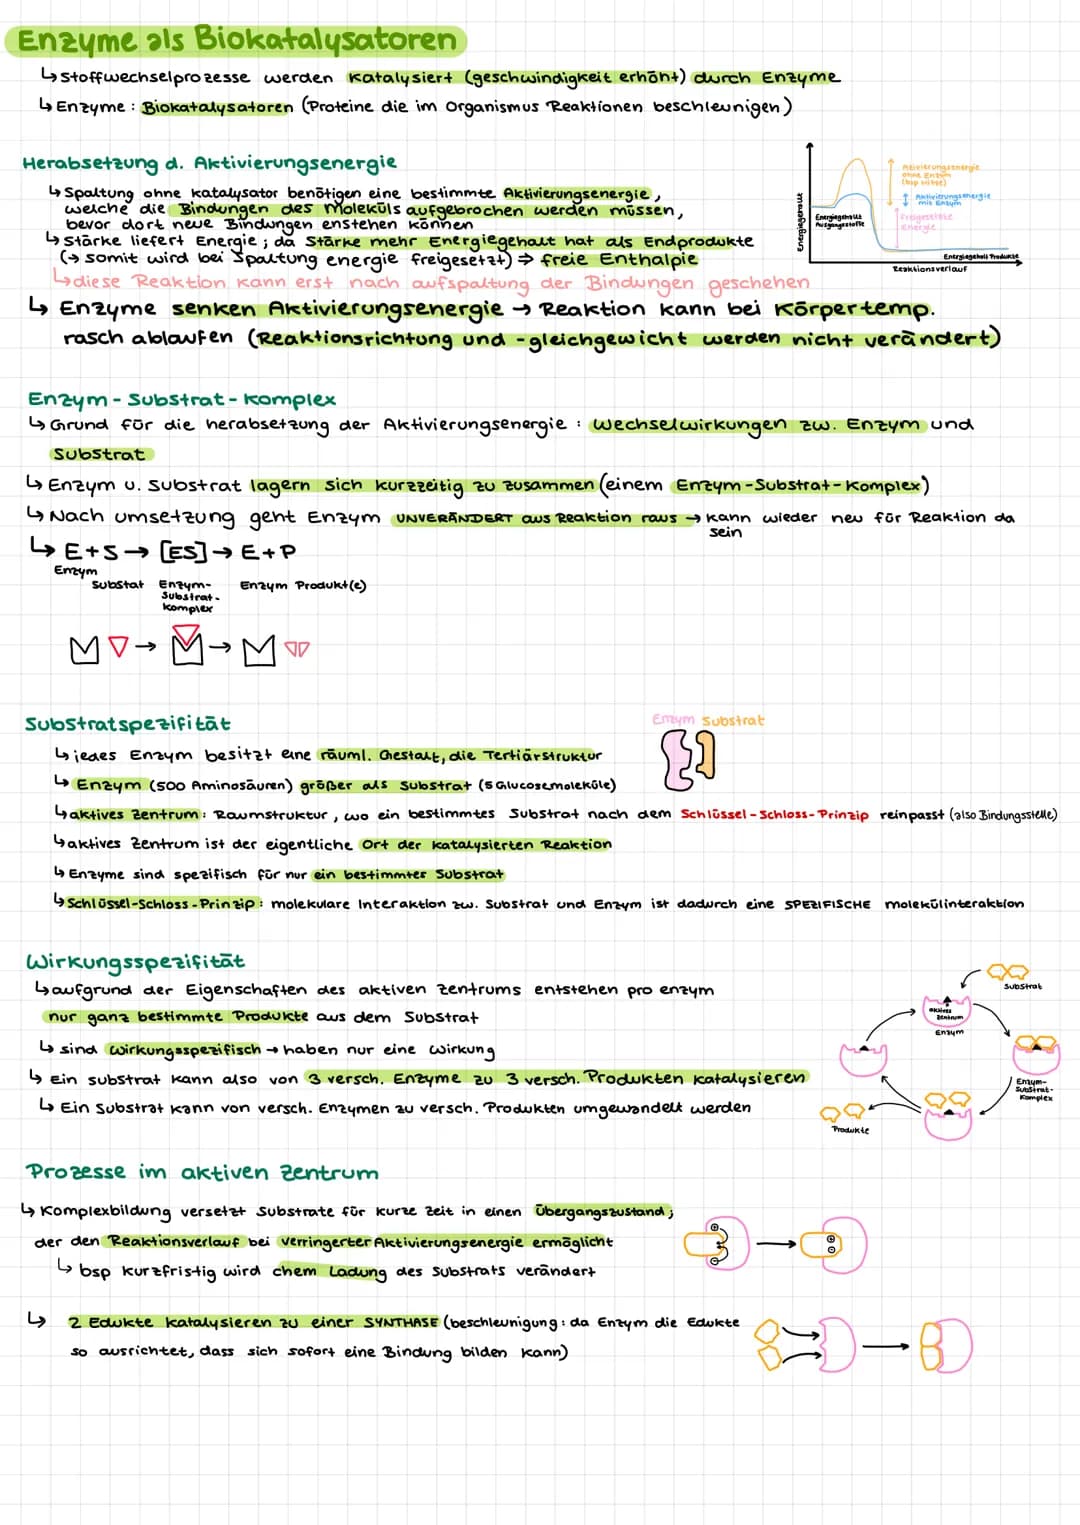 Enzyme als Biokatalysatoren
↳ Stoffwechselprozesse werden katalysiert (geschwindigkeit erhöht) durch Enzyme
↳ Enzyme : Biokatalysatoren (Proteine die im Organismus Reaktionen beschleunigen)
Herabsetzung d. Aktivierungsenergie
↳ Spaltung ohne Katalysator benötigen eine bestimmte Aktivierungsenergie,
welche die Bindungen des Moleküls aufgebrochen werden müssen,
bevor dort neue Bindungen enstehen können
↳ Stärke liefert Energie ; da Stärke mehr Energiegehalt hat als Endprodukte
(→ somit wird bei Spaltung energie freigesetzt) ⇒ freie Enthalpie
↳ diese Reaktion kann erst nach aufspaltung der Bindungen geschehen
↳ Enzyme senken Aktivierungsenergie → Reaktion kann bei Körpertemp.
rasch ablaufen (Reaktionsrichtung und -gleichgewicht werden nicht verändert)
Energiegehalt
Energiegehalt
Ausgangsstoffe
Aktivierungsenergie
ohne Enzym
(bsp Hitze)
Aktivierungsenergie
mit Enzym
freigesetzte
Energie
Energiegehalt Produkte
Reaktionsverlauf
Enzym - Substrat - Komplex
↳ Grund für die herabsetzung der Aktivierungsenergie : Wechselwirkungen zw. Enzym und
Substrat
↳ Enzym u. Substrat lagern sich kurzzeitig zu zusammen (einem Enzym-Substrat-Komplex)
↳ Nach umsetzung geht Enzym UNVERÄNDERT aus Reaktion raus → kann wieder neu für Reaktion da
sein
↳ E+S → [ES] → E+P
Enzym
Substat
Enzym-
Substrat-
Komplex
Enzym Produkt(e)
Substratspezifität
↳ jedes Enzym besitzt eine räuml. Gestalt, die Tertiärstruktur
↳ Enzym (500 Aminosäuren) größer als Substrat (5 Glucosemoleküle)
↳ aktives Zentrum: Raumstruktur, wo ein bestimmtes Substrat nach dem Schlüssel-Schloss-Prinzip reinpasst (also Bindungsstelle)
↳ aktives Zentrum ist der eigentliche Ort der katalysierten Reaktion
↳ Enzyme sind spezifisch für nur ein bestimmter Substrat
↳ Schlüssel-Schloss-Prinzip: molekulare Interaktion zw. Substrat und Enzym ist dadurch eine SPEZIFISCHE molekülinteraktion
Enzym Substrat
Wirkungsspezifität
↳ aufgrund der Eigenschaften des aktiven Zentrums entstehen pro enzym
nur ganz bestimmte Produkte aus dem Substrat
↳ sind wirkungsspezifisch → haben nur eine Wirkung
↳ Ein substrat kann also von 3 versch. Enzyme zu 3 versch. Produkten katalysieren
↳ Ein Substrat kann von versch. Enzymen zu versch. Produkten umgewandelt werden
Substrat
aktives
Zentrum
Enzym
Enzym-
Substrat-
Komplex
Produkte
Prozesse im aktiven Zentrum
↳ Komplexbildung versetzt Substrate für kurze Zeit in einen Übergangszustand;
der den Reaktionsverlauf bei verringerter Aktivierungsenergie ermöglicht
↳ bsp kurzfristig wird chem Ladung des Substrats verändert
↳ 2 Edukte katalysieren zu einer SYNTHASE (beschleunigung: da Enzym die Edukte
so ausrichtet, dass sich sofort eine Bindung bilden kann)